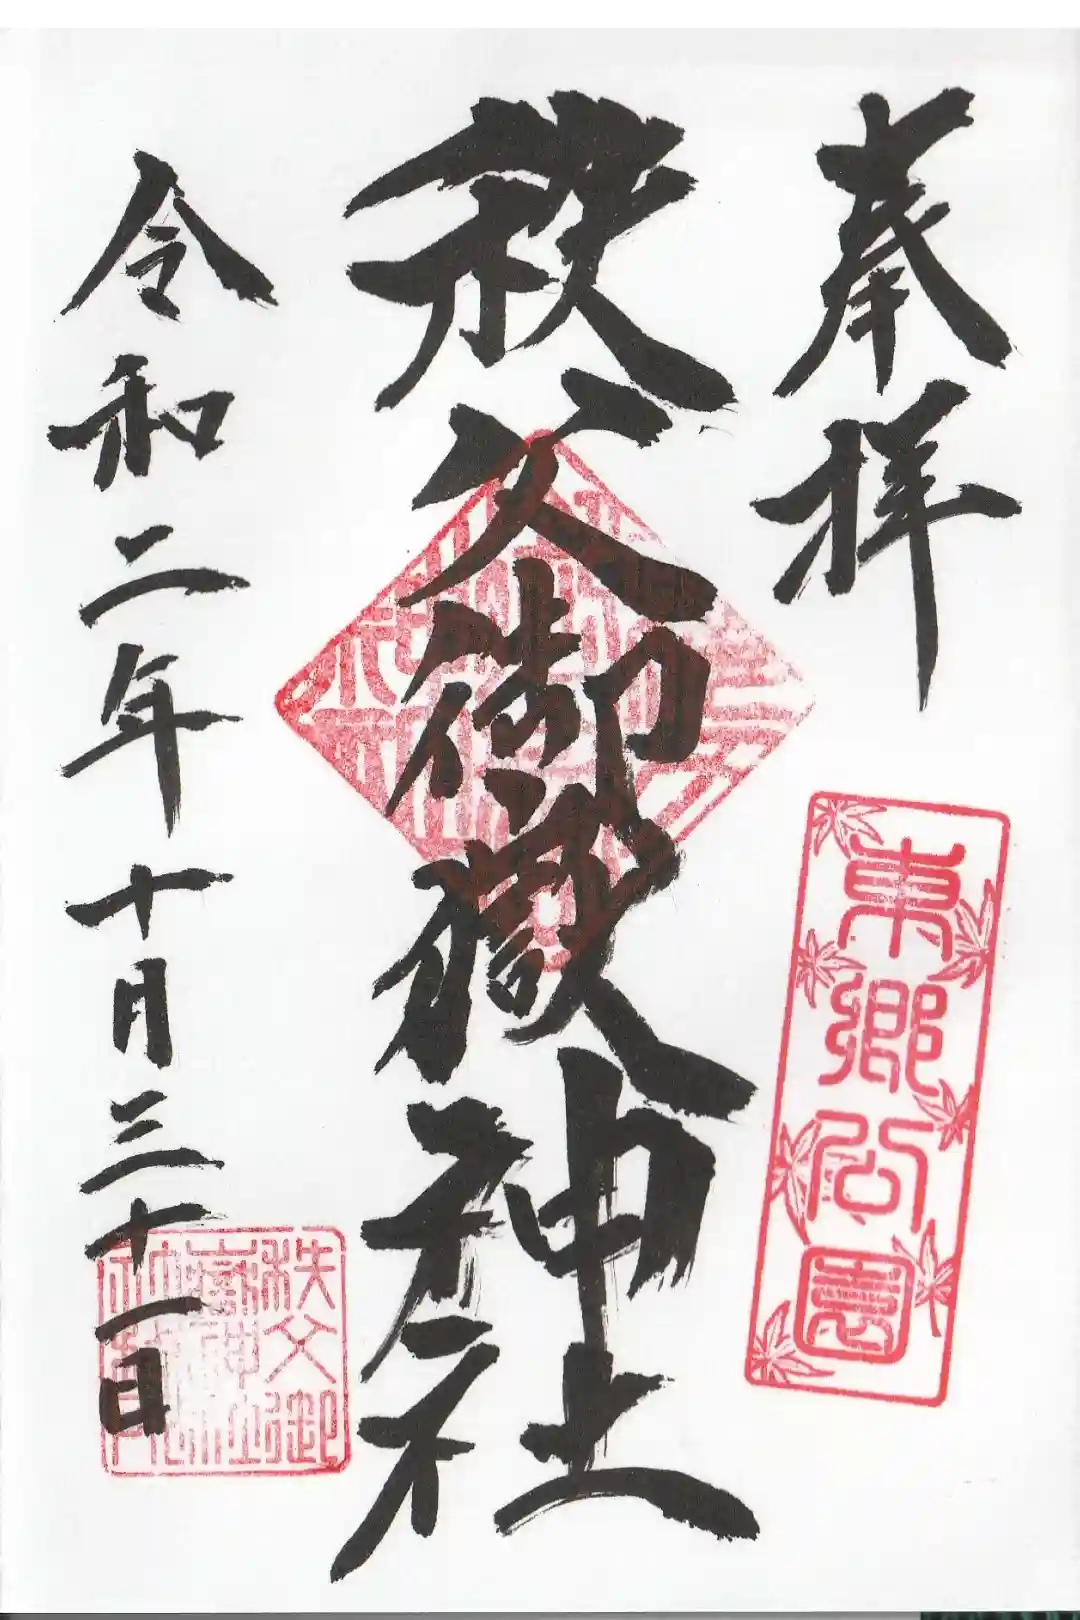 奉拝
東郷公園
秩父御嶽神社
令和二年十月三十一日
秩父御
嶽神社